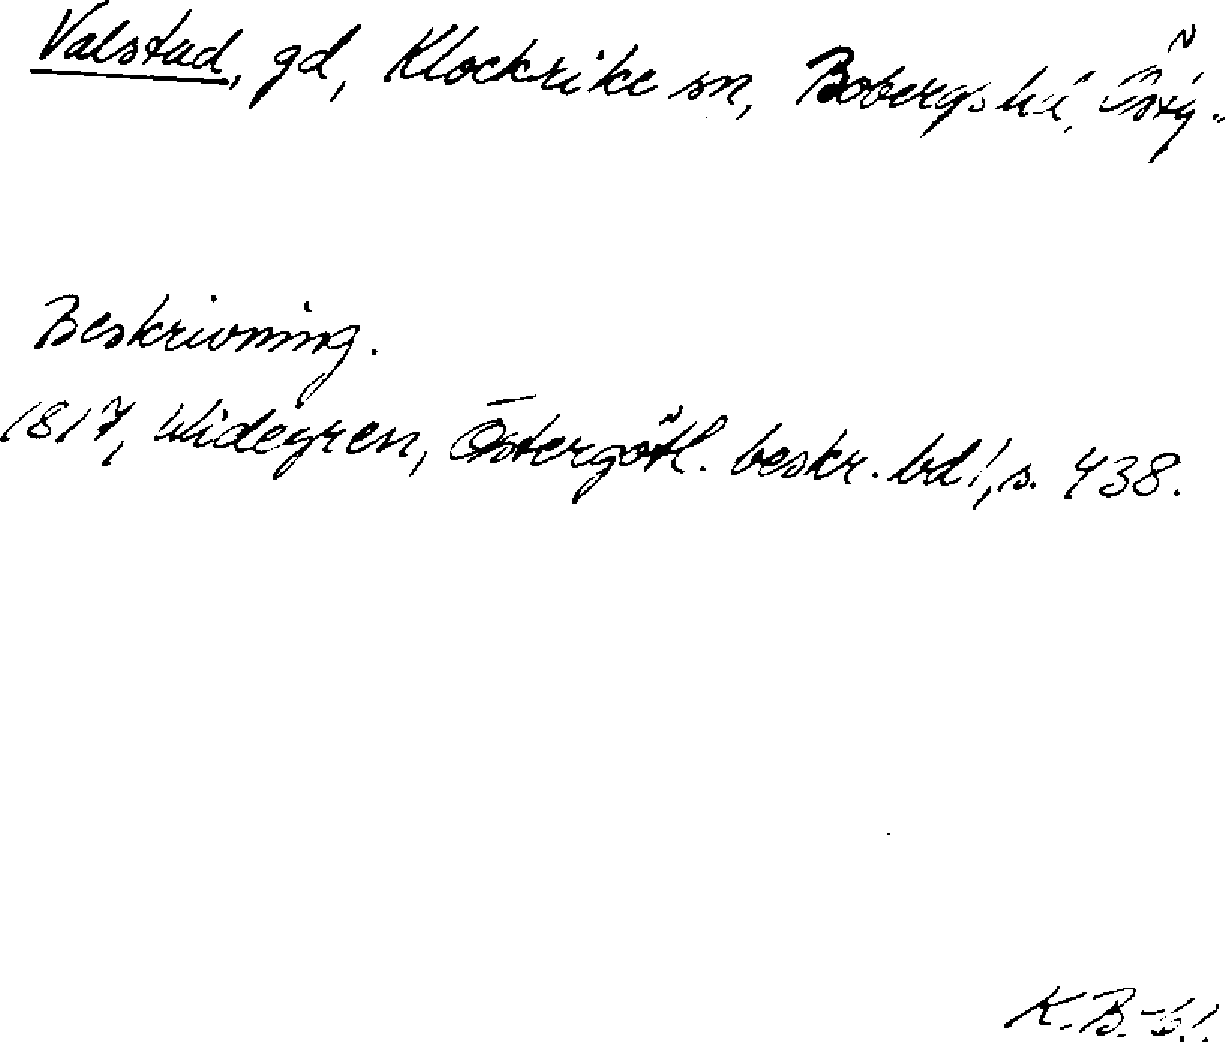 Valstad, gd, Klockrike sn, Bobergs hd, Östg.
Beskrivning.
1817, Widegren, Östergötl. beskr. bd 1, s. 438.
K. B.